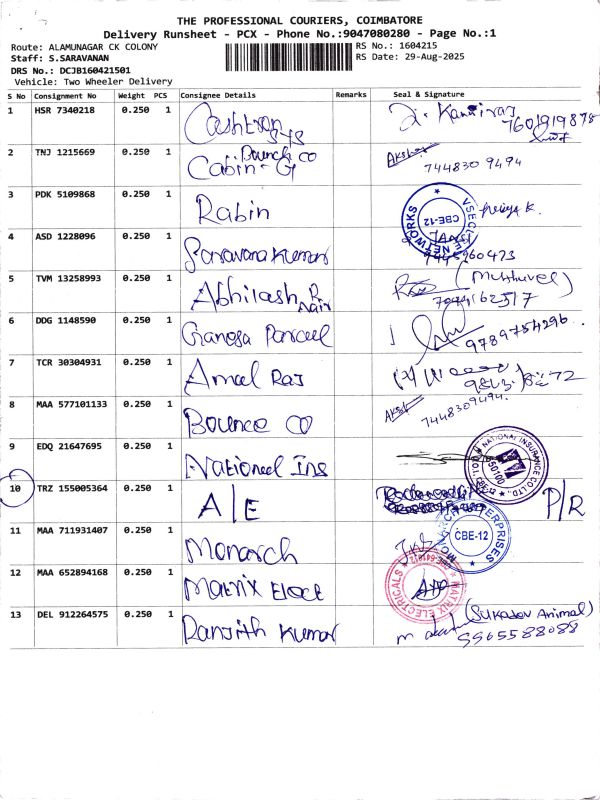 THE PROFESSIONAL COURIERS, COIMBATORE
Delivery Runsheet - PCX - Phone No.:9047080280 - Page No.:1
Route: ALAMUNAGAR CK COLONY
Staff: S.SARAVANAN
DRS No.: DCJB160421501
Vehicle: Two Wheeler Delivery
RS No.: 1604215
RS Date: 29-Aug-2025
S No Consignment No Weight PCS Consignee Details Remarks Seal & Signature
1 HSR 7340218 0.250 1 7601919878
2 TNJ 1215669 0.250 1 Cabin-G Bounce CO Akshay 7448309494
3 PDK 5109868 0.250 1 Rabin VSECURE NETWORKS CBE-12
4 ASD 1228096 0.250 1 Saravana Kumar
5 TVM 13258993 0.250 1 Abhilash R Nair (Muthuvel)
6 DDG 1148590 0.250 1 Ganesa Parceel 9789754296
7 TCR 30304931 0.250 1 Amal Raj
8 MAA 577101133 0.250 1 Bounce CO 7448309494.
9 EDQ 21647695 0.250 1 National Ins NATIONAL INSURANCE CO. LTD.,
10 TRZ 155005364 0.250 1 A/E P/R
11 MAA 711931407 0.250 1 Monarch MONARCH ENTERPRISES CBE-12
12 MAA 652894168 0.250 1 Matrix Elect MATRIX ELECTRICALS
13 DEL 912264575 0.250 1 Ranjith Kumar (Sukadev Animal) 9965588088